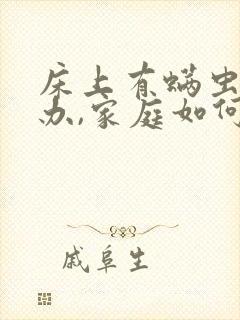 床上有螨虫
办,家庭如何
戚阜生